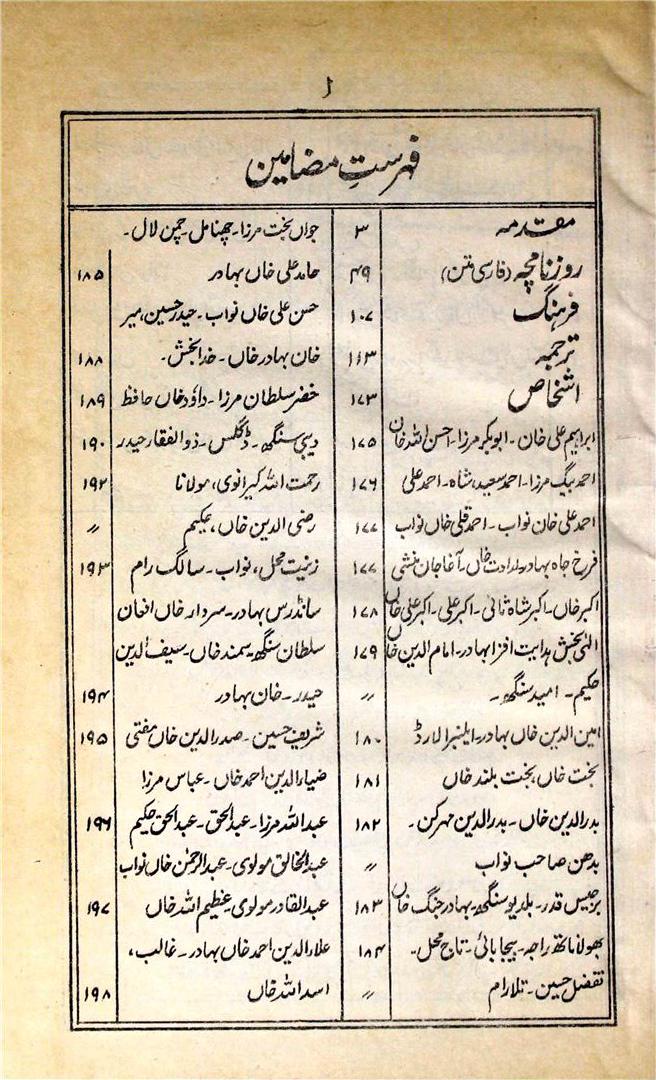 ۱
فہرستِ مضامین
مقدمہ ۳
روزنامچہ (فارسی متن) ۴۹
فرہنگ ۱۰۷
ترجمہ ۱۱۳
اشخاص ۱۷۳
ابراہیم علی خان۔ ابوبکر مرزا۔ احسن اللہ خاں ۱۷۵
احمد بیگ مرزا۔ احمد سعید، شاہ۔ احمد علی ۱۷۶
احمد علی خان نواب۔ احمد قلی خاں نواب ۱۷۷
فرخ جاہ بہادر۔ ارادت خاں۔ آغا جان منشی ۱۷۷
اکبر خاں۔ اکبر شاہ ثانی۔ اکبر علی۔ اکبر علی خاں ۱۷۸
الٰہی بخش ہدایت افزا بہادر۔ امام الدین خاں ۱۷۹
حکیم۔ امید سنگھ۔ ״
امین الدین خاں بہادر۔ ایلنبرا لارڈ ۱۸۰
بخت خاں، بخت بلند خاں ۱۸۱
بدر الدین خاں۔ بدر الدین مہر کن۔ ۱۸۲
بدھن صاحب نواب ״
برجیس قدر۔ بلدیو سنگھ۔ بہادر جنگ خاں ۱۸۳
بھولا ناتھ راجہ۔ بیجا بائی۔ تاج محل۔ ۱۸۴
تفضل حسین۔ تلارام ״
جواں بخت مرزا۔ چھنا مل۔ چمن لال۔
حامد علی خاں بہادر ۱۸۵
حسن علی خاں نواب۔ حیدر حسین، میر
خان بہادر خاں۔ خدا بخش۔ ۱۸۸
خضر سلطان مرزا۔ داؤد خاں حافظ ۱۸۹
دیبی سنگھ۔ ڈگلس۔ ذوالفقار حیدر ۱۹۰
رحمت اللہ کیرانوی، مولانا ۱۹۲
رضی الدین خاں، حکیم ״
زینت محل، نواب۔ سالگ رام ۱۹۳
سانڈرس بہادر۔ سردار خاں افغان
سلطان سنگھ۔ سمند خاں۔ سیف الدین
حیدر۔ خان بہادر ۱۹۴
شریف حسین۔ صدر الدین خاں مفتی ۱۹۵
ضیاء الدین احمد خاں۔ عباس مرزا
عبد اللہ مرزا۔ عبد الحق۔ عبد الحق حکیم ۱۹۶
عبد الخالق مولوی۔ عبد الرحمٰن خاں نواب
عبد القادر مولوی۔ عظیم اللہ خاں ۱۹۷
علاء الدین احمد خاں بہادر۔ غالب،
اسد اللہ خاں ۱۹۸